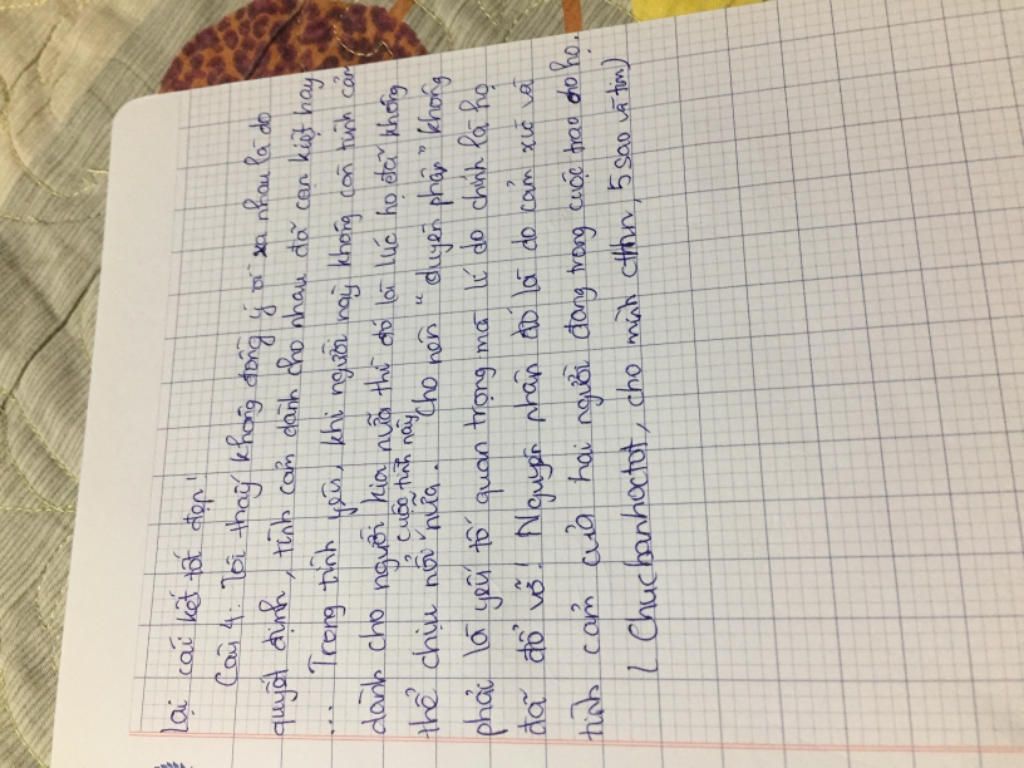 lại cái kết tốt đẹp"
Câu 4: Tôi thấy không đồng ý vì xa nhau là do
quyết định, tình cảm dành cho nhau đã cạn kiệt hay
... Trong tình yêu, khi người này không còn tình cảm
dành cho người kia nữa thì đó là lúc họ đã không
thể chịu nổi cuộc tình này nữa. Cho nên "duyên phận" không
phải là yếu tố quan trọng mà lí do chính là họ
đã đổ vỡ! Nguyên nhân đó là do cảm xúc và
tình cảm của hai người đang trong cuộc trao cho họ.
( Chucbanhoctot, cho mình cthn, 5 sao và tim)